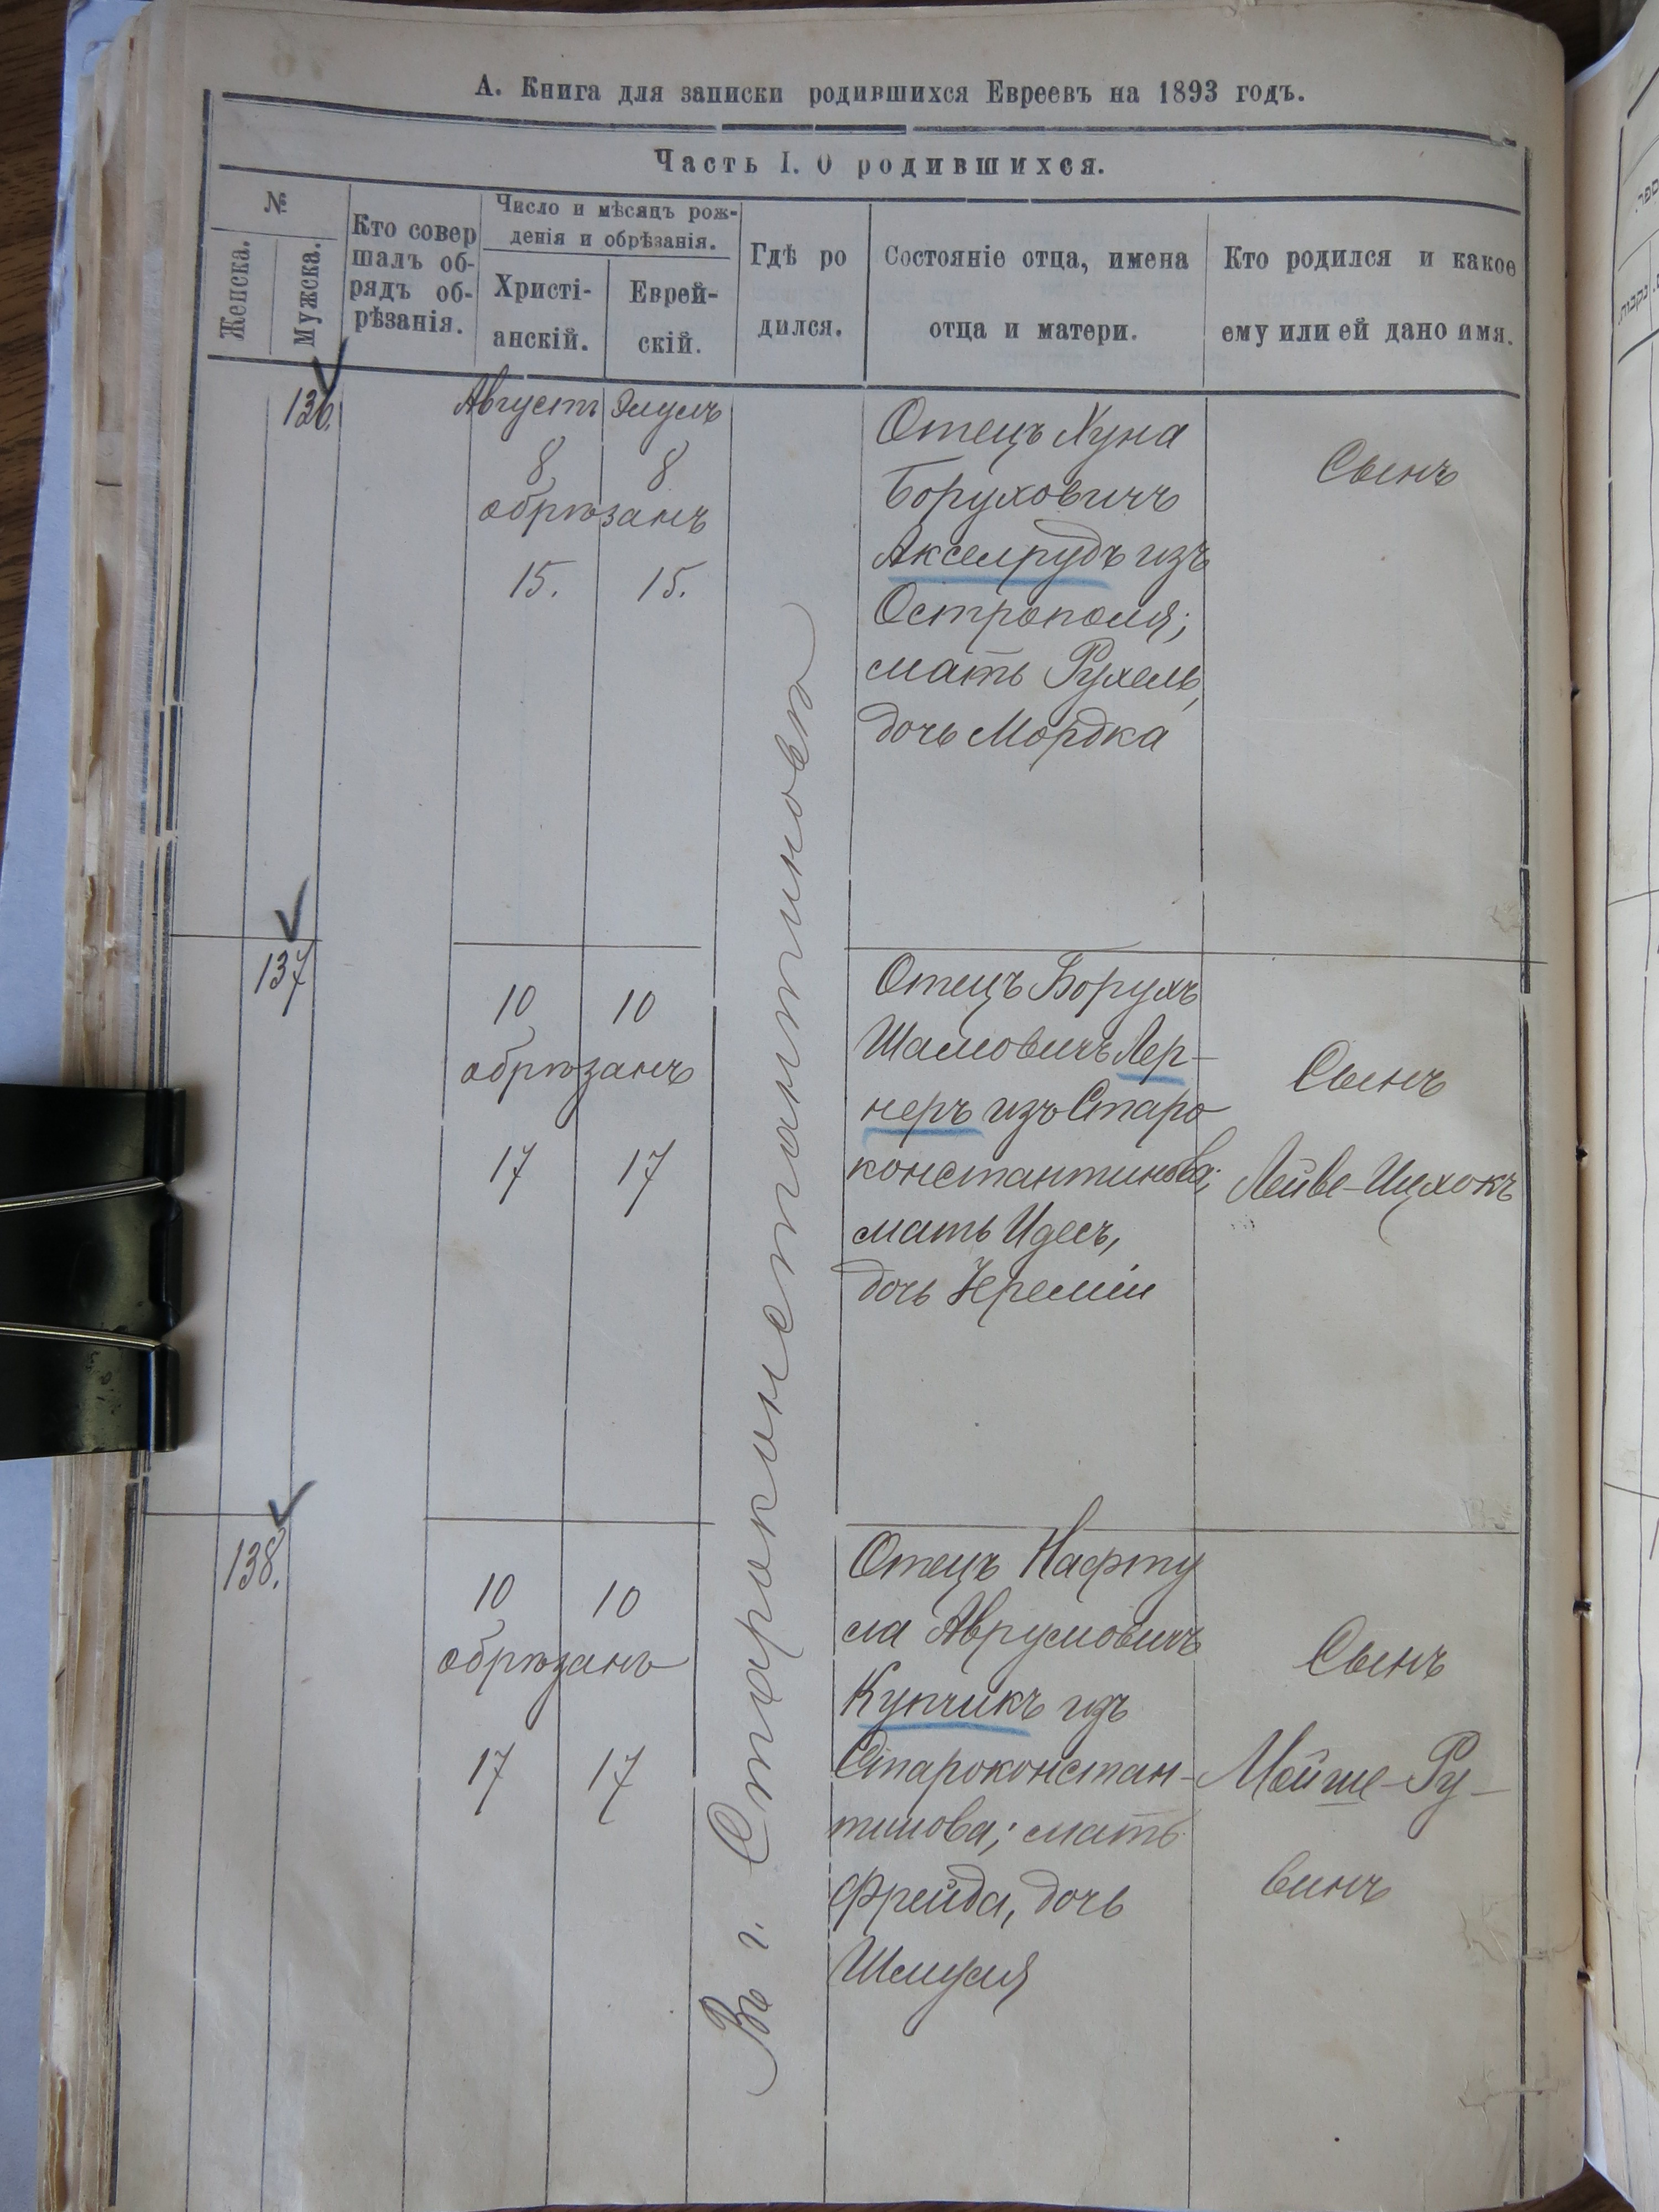 А. Книга для записки родившихся Евреевъ на 1893 годъ.
Часть I. О родившихся.
№
Женска.
Мужска.
Кто совер
шалъ об-
рядъ об-
рѣзанія.
Число и мѣсяцъ рож-
денія и обрѣзанія.
Христі-
анскій.
Еврей-
скій.
Гдѣ ро
дился.
Состояніе отца, имена
отца и матери.
Кто родился и какое
ему или ей дано имя.
136.
Августъ Элулъ
8 8
обрѣзанъ
15. 15.
Отецъ Хуна
Боруховичъ
Акселрудъ изъ
Острополя;
мать Рухель,
дочь Мордка
Сынъ
Въ г. Староконстантиновѣ
137
10 10
обрѣзанъ
17 17
Отецъ Борухъ
Шамовичъ Лер-
неръ изъ Старо
константинова;
мать Идесъ,
дочь Іереміи
Сынъ
Лейве-Ицхокъ
138.
10 10
обрѣзанъ
17 17
Отецъ Нафту
ла Аврумовичъ
Купчикъ изъ
Староконстан-
тинова; мать
Фрейда, дочь
Шмуля
Сынъ
Мойше-Ру-
винъ